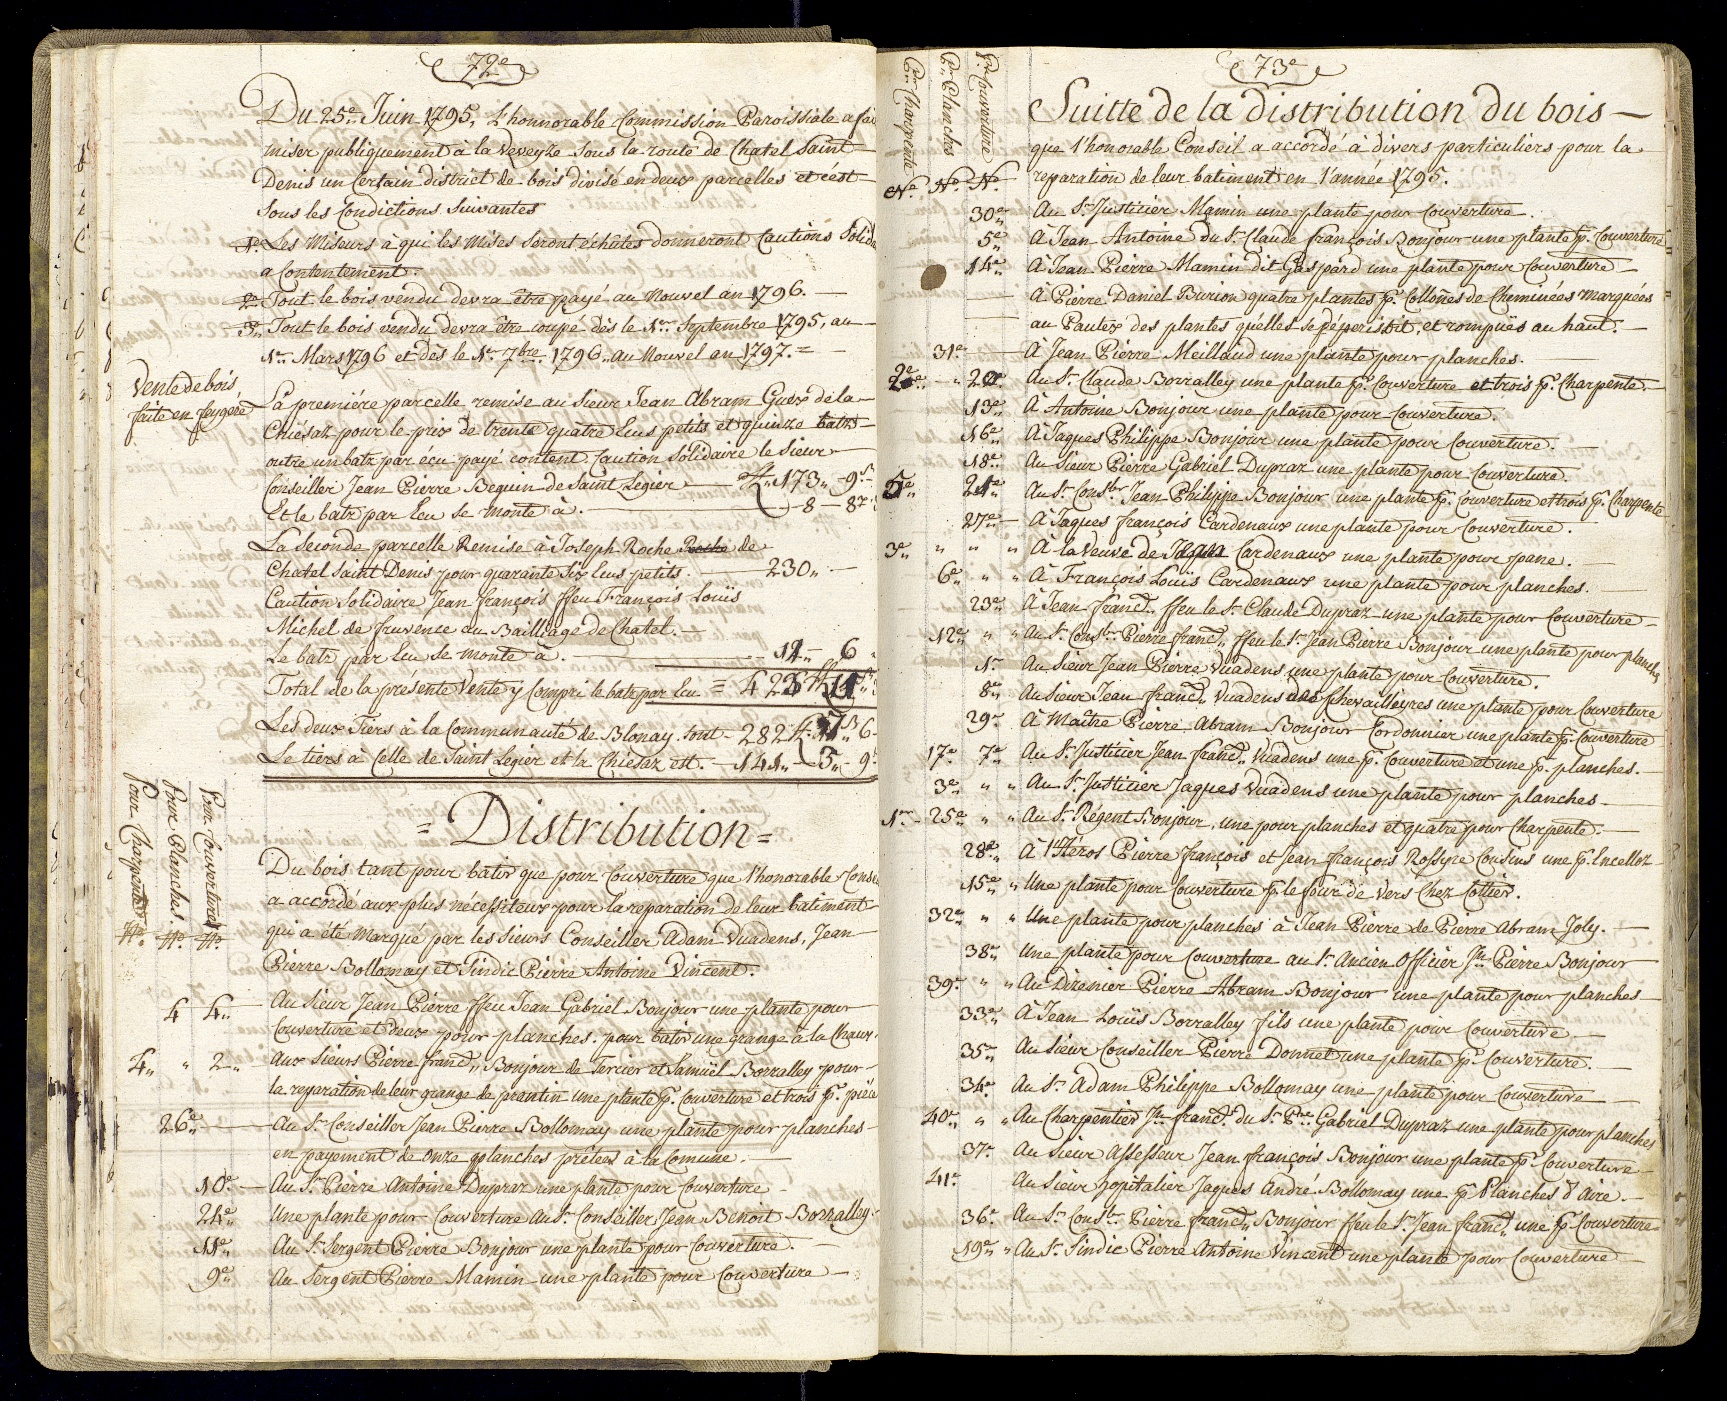 72e
Du 25e. Juin 1795, L'honnorable Commission Paroissiale a fai
miser publiquement à la Veveyze sous la route de Chatel Saint
Denis un Certain district de bois divisé en deux parcelles et c'ést
sous les Condictions Suivantes
1e. Les Miseurs à qui les Mises seront échûtes donneront Cautions Solida
a Contentement.
2e. Tout le bois vendu devra être payé au Nouvel an 1796.
3e. Tout le bois vendu devra être coupé dès le 1er. Septembre 1795, au
1er. Mars 1796 et dès le 1er 7bre. 1796. au Nouvel an 1797. =
Vente de bois
faite en feygere
La première parcelle remise au Sieur Jean Abram Guex de la
Chiésaz pour le prix de trente quatre Ecus petits et quinze batz
outre un batz par ecu payé content, Caution Solidaire le Sieur
Conseiller Jean Pierre Beguin de Saint Légier — ff. 173„ 9s.
Et le batz par Ecu se monte à. — 8 — 8
La Seconde parcelle Remise à Joseph Roche Roche de
Chatel Saint Denis pour quarante Six Ecus petits. — 230„ —
Caution Solidaire Jean françois ffeu François Louïs
Michel de fruvence au Bailliage de Chatel. —
Le batz par Ecu se monte à. — 11„ 6
Total de la présente Vente y Compri le batz par Ecu =
Les deux Tiers à la Communauté de Blonay sont - 282
Le tiers à Celle de Saint Legier et la Chiésaz est. — 141„ — 3„ 9
= Distribution =
Pour Charpente
Pour Planches.
Pour Couverture
No. No. No.
Du bois tant pour bâtir que pour Couverture que l'honorable Conse
a accordé aux plus nécessiteux pour la reparation de leur batiment
qui a été marqué par les Sieurs Conseiller Adam Vuadens, Jean
Pierre Bollomay et Sindic Pierre Antoine Vincent.
4 4„ Au Sieur Jean Pierre ffeu Jean Gabriel Bonjour une plante pour
Couverture et deux pour planches. pour batir une grange à la Chaux.
4„ „ 2„ Aux Sieurs Pierre francs. Bonjour de Tercier et Samuël Borralley pour
la reparation de leur grange de prantin une plante pr. Couverture et trois pr. pièce
26e. Au Sr. Conseiller Jean Pierre Bollomay une plante pour planches
en payement de onze planches prétées à la Comune. —
10e. Au Sr. Pierre Antoine Dupraz une plante pour Couverture
24e. Une plante pour Couverture au Sr. Conseiller Jean Benoit Borralley.
11e. Au Sr. Sergent Pierre Bonjour une plante pour Couverture.
9e. Au Sergent Pierre Mamin une plante pour Couverture —
73e
Pr. Charpente
Pr. Planches
Pr. Couverture
No. No. No.
Suitte de la distribution du bois —
que l'honorable Conseil a accordé à divers particuliers pour la
reparation de leur batiment en l'année 1795.
30e. Au Sr. Justicier Mamin une plante pour Couverture.
5e. À Jean Antoine du Sr. Claude François Bonjour une plante pr. Couverture
14e. À Jean Pierre Mamin dit Gaspard une plante pour Couverture —
À Pierre Daniel Burion quatre plantes pr. Collones de Cheminées marquées
au Pautex des plantes qu'elles se déperissoit, et rompuës au haut. —
31e. À Jean Pierre Meillaud une plante pour planches.
2e. „ 20e. Au Sr. Claude Borralley une plante pr. Couverture et trois pr. Charpente.
13e. À Antoine Bonjour une plante pour Couverture.
16e. À Jaques Philippe Bonjour une plante pour Couverture.
18e. Au Sieur Pierre Gabriel Dupraz une plante pour Couverture.
5e. 21e. Au Sr. Consler Jean Philippe Bonjour une plante pr. Couverture et trois pr. Charpente
27e. À Jaques françois Cardenaux une plante pour Couverture.
3e. „ „ „ À la Veuve de Cardenaux une plante pour pane.
6e. „ „ À François Louïs Cardenaux une plante pour planches.
23e. À Jean francs. ffeu le Sr. Claude Dupraz une plante pour Couverture
12e. „ „ Au Sr. Consler. Pierre francs. ffeu le Sr. Jean Pierre Bonjour une plante pour planches
1er. Au Sieur Jean Pierre Vuadens une plante pour Couverture.
8e. Au Sieur Jean francs. Vuadens des Chevailleyres une plante pour Couverture
29e. À Maître Pierre Abram Bonjour Cordonnier une plante pr. Couverture
17e. 7e. Au Sr. Justicier Jean francs. Vuadens une pr. Couverture et une pr. planches.
3e. „ „ Au Sr. Justicier Jaques Vuadens une plante pour planches
1er. 25e. „ „ Au Sr. Régent Bonjour, une pour planches et quatre pour Charpente.
28e. À Pierre françois et Jean françois Rossyre Cousins une pr. Encelloz
15e. „ Une plante pour Couverture pr. le four de Vers Chez Cottier.
32e. „ „ Une plante pour planches à Jean Pierre de Pierre Abram Joly. —
38e. Une plante pour Couverture au Sr. Ancien Officier Jn. Pierre Bonjour
39e. „ „ Au Dizenier Pierre Abram Bonjour une plante pour planches
33e. À Jean Louïs Borralley fils une plante pour Couverture —
35e. Au Sieur Conseiller Pierre Donnet une plante pr. Couverture.
34e. Au Sr. Adam Philippe Bollomay une plante pour Couverture
40e. „ „ Au Charpentier Jn. francs. du Sr. Pre. Gabriel Dupraz une plante pour planches
37e. Au Sieur Assesseur Jean françois Bonjour une plante pr. Couverture
41e. Au Sieur hopitalier Jaques André Bollomay une pr. Planches d'Aire. —
36e. Au Sr. Consler. Pierre francs. Bonjour ffeu le Sr. Jean francs. une pr. Couverture
19e. „ Au Sr. Sindic Pierre Antoine Vincent une plante pour Couverture —